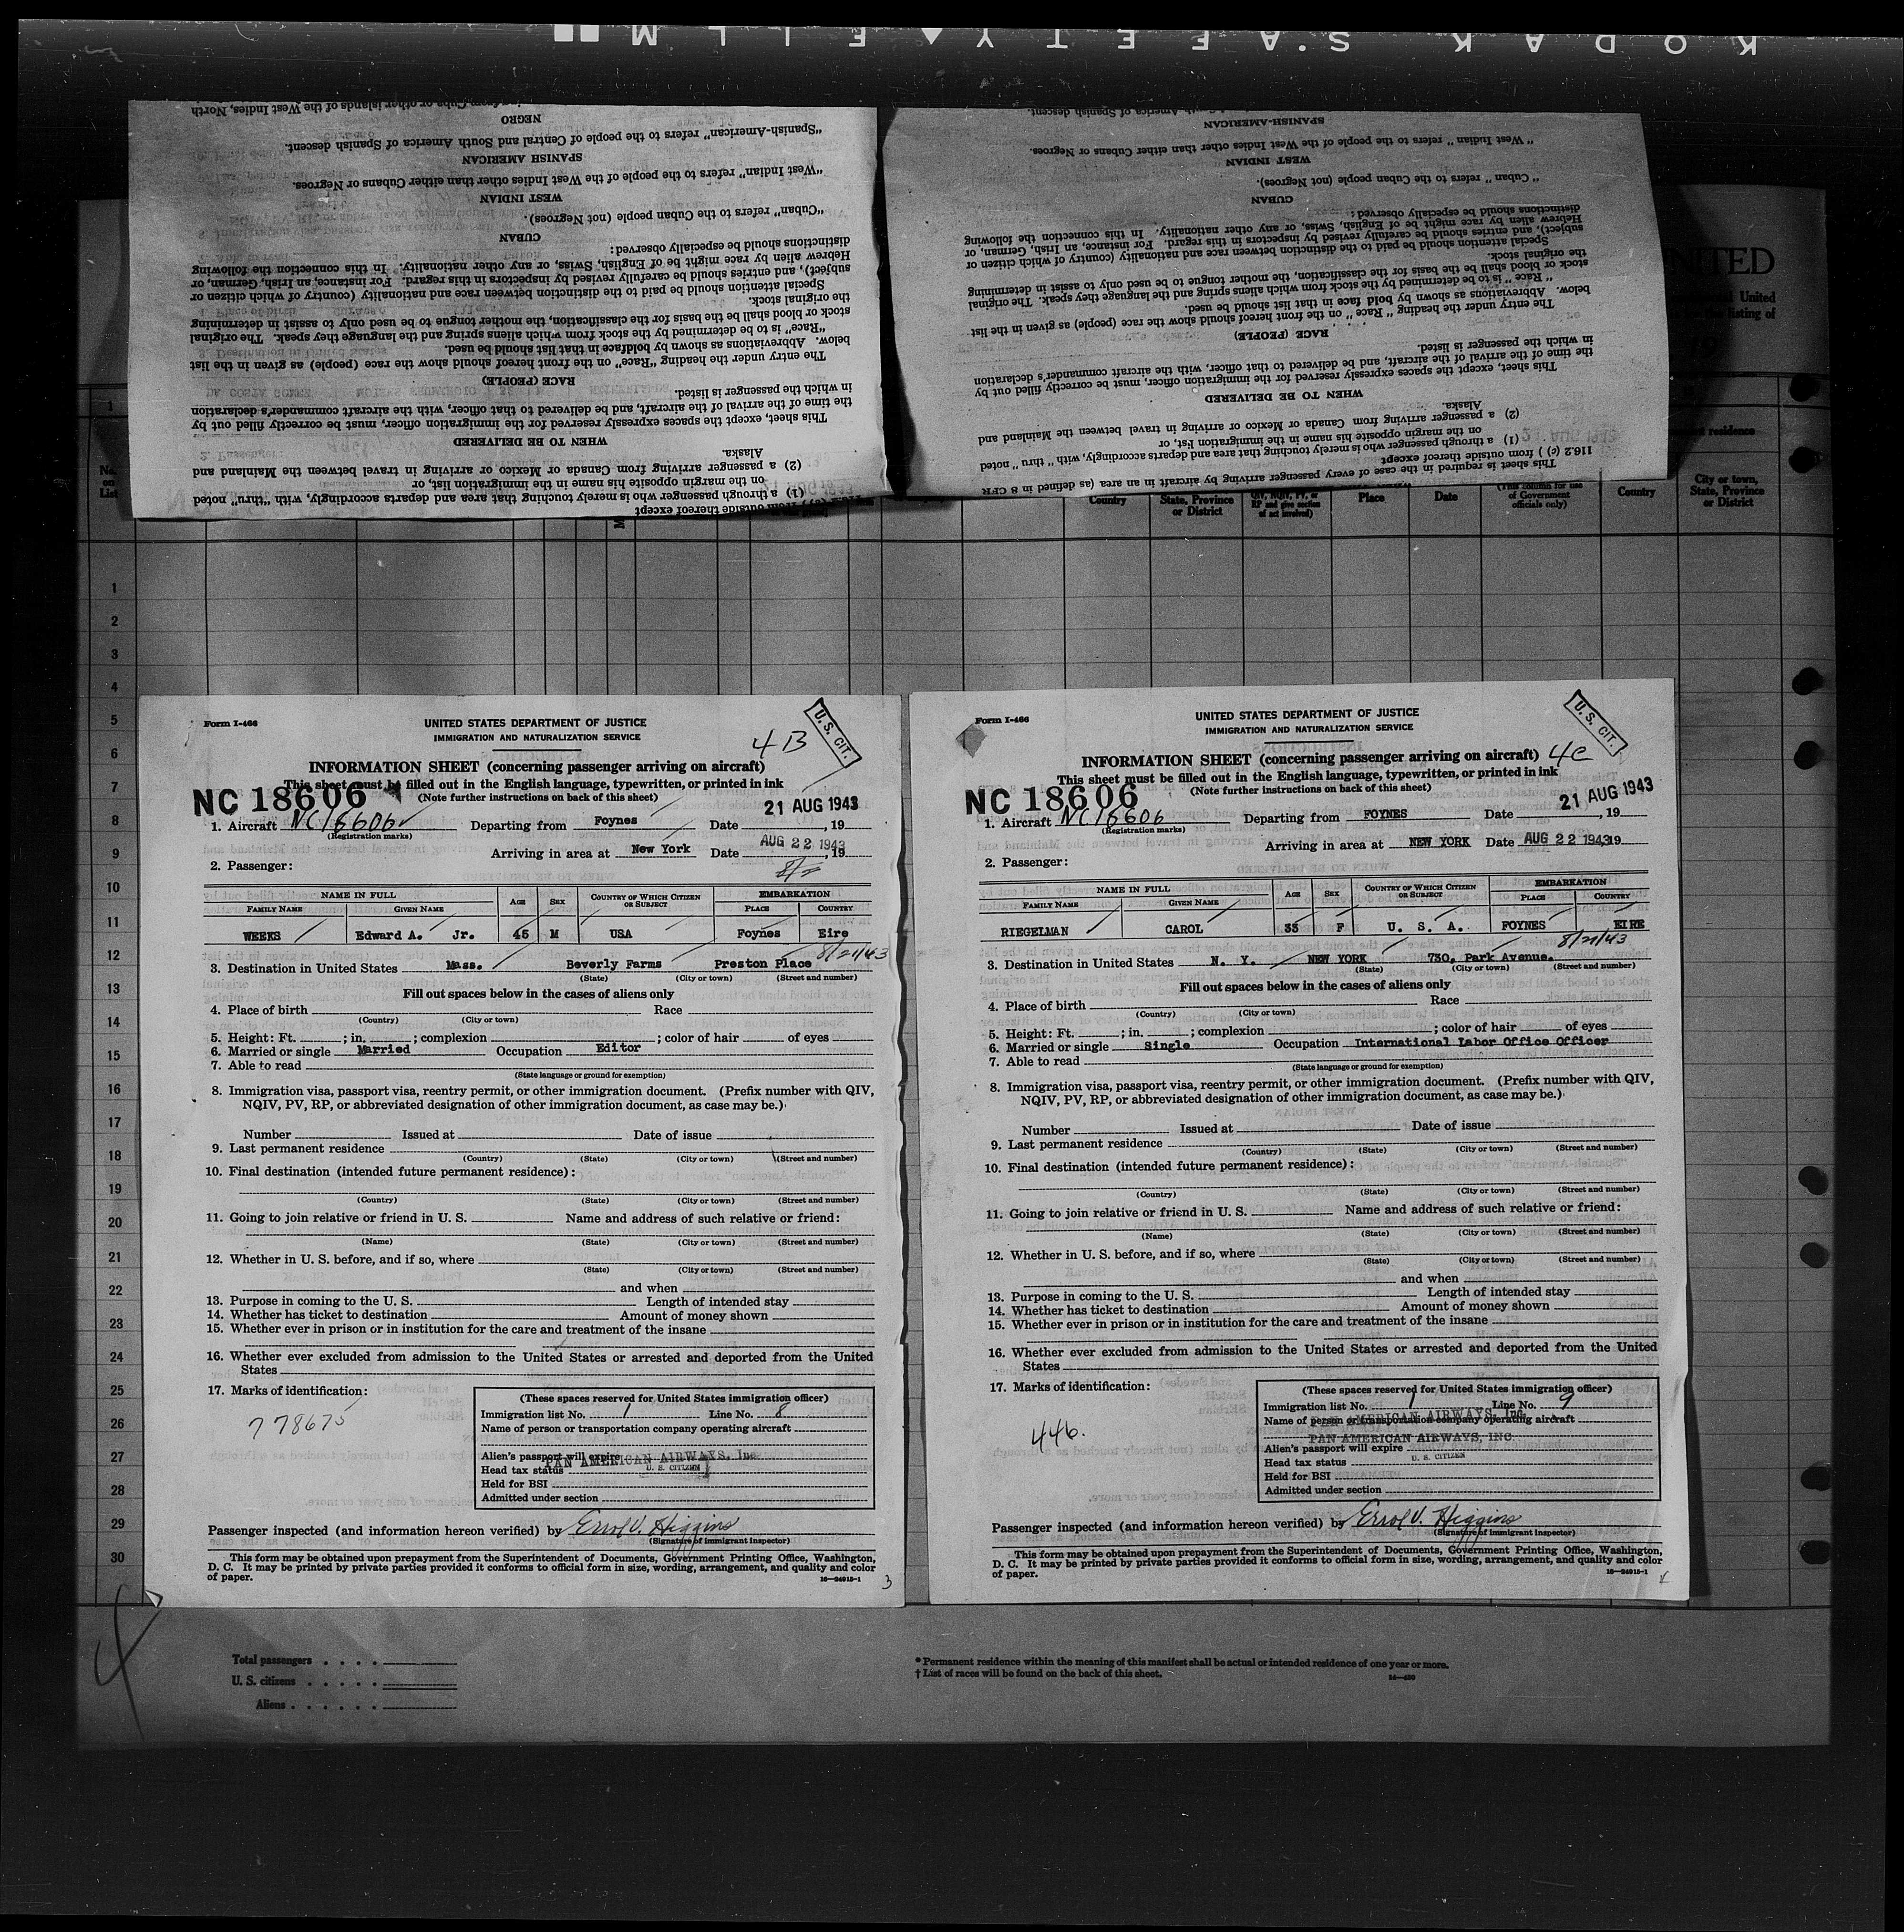 KODAK S.A.FETY FILM
North
NEGRO
"Spanish-American" refers to the people of Central and South America of Spanish descent.
SPANISH AMERICAN
"West Indian" refers to the people of the West Indies other than either Cubans or Negroes.
WEST INDIAN
"Cuban" refers to the Cuban people (not Negroes).
CUBAN
distinctions should be especially observed:
Hebrew alien by race might be of English, Swiss, or any other nationality. In this connection the following
subject), and entries should be carefully revised by inspectors in this regard. For instance, an Irish, German, or
Special attention should be paid to the distinction between race and nationality (country of which citizen or
the original stock.
stock or blood shall be the basis for the classification, the mother tongue to be used only to assist in determining
"Race" is to be determined by the stock from which aliens spring and the language they speak. The original
below. Abbreviations as shown by boldface in that list should be used.
The entry under the heading "Race" on the front hereof should show the race (people) as given in the list
RACE (PEOPLE)
in which the passenger is listed.
the time of the arrival of the aircraft, and be delivered to that officer, with the aircraft commander's declaration
This sheet, except the spaces expressly reserved for the immigration officer, must be correctly filled out by
WHEN TO BE DELIVERED
Alaska.
(2) a passenger arriving from Canada or Mexico or arriving in travel between the Mainland and
on the margin opposite his name in the immigration list, or
(1) a through passenger who is merely touching that area and departs accordingly, with "thru" noted
from outside thereof except
SPANISH-AMERICAN
"West Indian" refers to the people of the West Indies other than either Cubans or Negroes.
WEST INDIAN
"Cuban" refers to the Cuban people (not Negroes).
CUBAN
distinctions should be especially observed:
Hebrew alien by race might be of English, Swiss, or any other nationality. In this connection the following
subject), and entries should be carefully revised by inspectors in this regard. For instance, an Irish, German, or
Special attention should be paid to the distinction between race and nationality (country of which citizen or
the original stock.
stock or blood shall be the basis for the classification, the mother tongue to be used only to assist in determining
"Race" is to be determined by the stock from which aliens spring and the language they speak. The original
below. Abbreviations as shown by bold face in that list should be used.
The entry under the heading "Race" on the front hereof should show the race (people) as given in the list
RACE (PEOPLE)
in which the passenger is listed.
the time of the arrival of the aircraft, and be delivered to that officer, with the aircraft commander's declaration
This sheet, except the spaces expressly reserved for the immigration officer, must be correctly filled out by
WHEN TO BE DELIVERED
Alaska.
(2) a passenger arriving from Canada or Mexico or arriving in travel between the Mainland and
on the margin opposite his name in the immigration list, or
(1) a through passenger who is merely touching that area and departs accordingly, with "thru" noted
116.2 (c) ) from outside thereof except
This sheet is required in the case of every passenger arriving by aircraft in an area (as defined in 8 CFR
TED
United
listing of
residence
No. on List
Country
State, Province or District
Place
Date
(This column for use of Government officials only)
Country
City or town, State, Province or District
1
2
3
4
5
6
7
8
9
10
11
12
13
14
15
16
17
18
19
20
21
22
23
24
25
26
27
28
29
30
Form I-466
UNITED STATES DEPARTMENT OF JUSTICE
IMMIGRATION AND NATURALIZATION SERVICE
4B
U.S. CIT.
INFORMATION SHEET (concerning passenger arriving on aircraft)
This sheet must be filled out in the English language, typewritten, or printed in ink
(Note further instructions on back of this sheet)
NC 18606
21 AUG 1943
1. Aircraft NC18606 Departing from Foynes Date , 19
(Registration marks)
Arriving in area at New York Date AUG 22 1943, 19
2. Passenger:
NAME IN FULL AGE SEX COUNTRY OF WHICH CITIZEN OR SUBJECT EMBARKATION
FAMILY NAME GIVEN NAME PLACE COUNTRY
WEEKS Edward A. Jr. 45 M USA Foynes Eire
8/21/43
3. Destination in United States Mass. Beverly Farms Preston Place
(State) (City or town) (Street and number)
Fill out spaces below in the cases of aliens only
4. Place of birth Race
(Country) (City or town)
5. Height: Ft. ; in. ; complexion ; color of hair of eyes
6. Married or single Married Occupation Editor
7. Able to read
(State language or ground for exemption)
8. Immigration visa, passport visa, reentry permit, or other immigration document. (Prefix number with QIV,
NQIV, PV, RP, or abbreviated designation of other immigration document, as case may be.)
Number Issued at Date of issue
9. Last permanent residence
(Country) (State) (City or town) (Street and number)
10. Final destination (intended future permanent residence):
(Country) (State) (City or town) (Street and number)
11. Going to join relative or friend in U. S. Name and address of such relative or friend:
(Name) (State) (City or town) (Street and number)
12. Whether in U. S. before, and if so, where
(State) (City or town) (Street and number)
and when
13. Purpose in coming to the U. S. Length of intended stay
14. Whether has ticket to destination Amount of money shown
15. Whether ever in prison or in institution for the care and treatment of the insane
16. Whether ever excluded from admission to the United States or arrested and deported from the United
States
17. Marks of identification:
778675
(These spaces reserved for United States immigration officer)
Immigration list No. 1 Line No. 8
Name of person or transportation company operating aircraft
Alien's passport will expire
PAN AMERICAN AIRWAYS, Inc
Head tax status U. S. CITIZEN
Held for BSI
Admitted under section
Passenger inspected (and information hereon verified) by Errol V. Higgins
(Signature of immigrant inspector)
This form may be obtained upon prepayment from the Superintendent of Documents, Government Printing Office, Washington,
D. C. It may be printed by private parties provided it conforms to official form in size, wording, arrangement, and quality and color
of paper.
16—24915-1
3
Form I-466
UNITED STATES DEPARTMENT OF JUSTICE
IMMIGRATION AND NATURALIZATION SERVICE
U.S. CIT.
INFORMATION SHEET (concerning passenger arriving on aircraft) 4C
This sheet must be filled out in the English language, typewritten, or printed in ink
(Note further instructions on back of this sheet)
NC 18606
21 AUG 1943
1. Aircraft NC18606 Departing from FOYNES Date , 19
(Registration marks)
Arriving in area at NEW YORK Date AUG 22 1943 19
2. Passenger:
NAME IN FULL AGE SEX COUNTRY OF WHICH CITIZEN OR SUBJECT EMBARKATION
FAMILY NAME GIVEN NAME PLACE COUNTRY
RIEGELMAN CAROL 33 F U. S. A. FOYNES EIRE
8/21/43
3. Destination in United States N. Y. NEW YORK 730, Park Avenue.
(State) (City or town) (Street and number)
Fill out spaces below in the cases of aliens only
4. Place of birth Race
(Country) (City or town)
5. Height: Ft. ; in. ; complexion ; color of hair of eyes
6. Married or single Single Occupation International Labor Office Officer
7. Able to read
(State language or ground for exemption)
8. Immigration visa, passport visa, reentry permit, or other immigration document. (Prefix number with QIV,
NQIV, PV, RP, or abbreviated designation of other immigration document, as case may be.)
Number Issued at Date of issue
9. Last permanent residence
(Country) (State) (City or town) (Street and number)
10. Final destination (intended future permanent residence):
(Country) (State) (City or town) (Street and number)
11. Going to join relative or friend in U. S. Name and address of such relative or friend:
(Name) (State) (City or town) (Street and number)
12. Whether in U. S. before, and if so, where
(State) (City or town) (Street and number)
and when
13. Purpose in coming to the U. S. Length of intended stay
14. Whether has ticket to destination Amount of money shown
15. Whether ever in prison or in institution for the care and treatment of the insane
16. Whether ever excluded from admission to the United States or arrested and deported from the United
States
17. Marks of identification:
446.
(These spaces reserved for United States immigration officer)
Immigration list No. 1 Line No. 9
Name of person or transportation company operating aircraft
PAN AMERICAN AIRWAYS, Inc.
PAN AMERICAN AIRWAYS, INC.
Alien's passport will expire
Head tax status U. S. CITIZEN
Held for BSI
Admitted under section
Passenger inspected (and information hereon verified) by Errol V. Higgins
(Signature of immigrant inspector)
This form may be obtained upon prepayment from the Superintendent of Documents, Government Printing Office, Washington,
D. C. It may be printed by private parties provided it conforms to official form in size, wording, arrangement, and quality and color
of paper.
16—24915-1
4
Total passengers
U. S. citizens
Aliens
* Permanent residence within the meaning of this manifest shall be actual or intended residence of one year or more.
† List of races will be found on the back of this sheet.